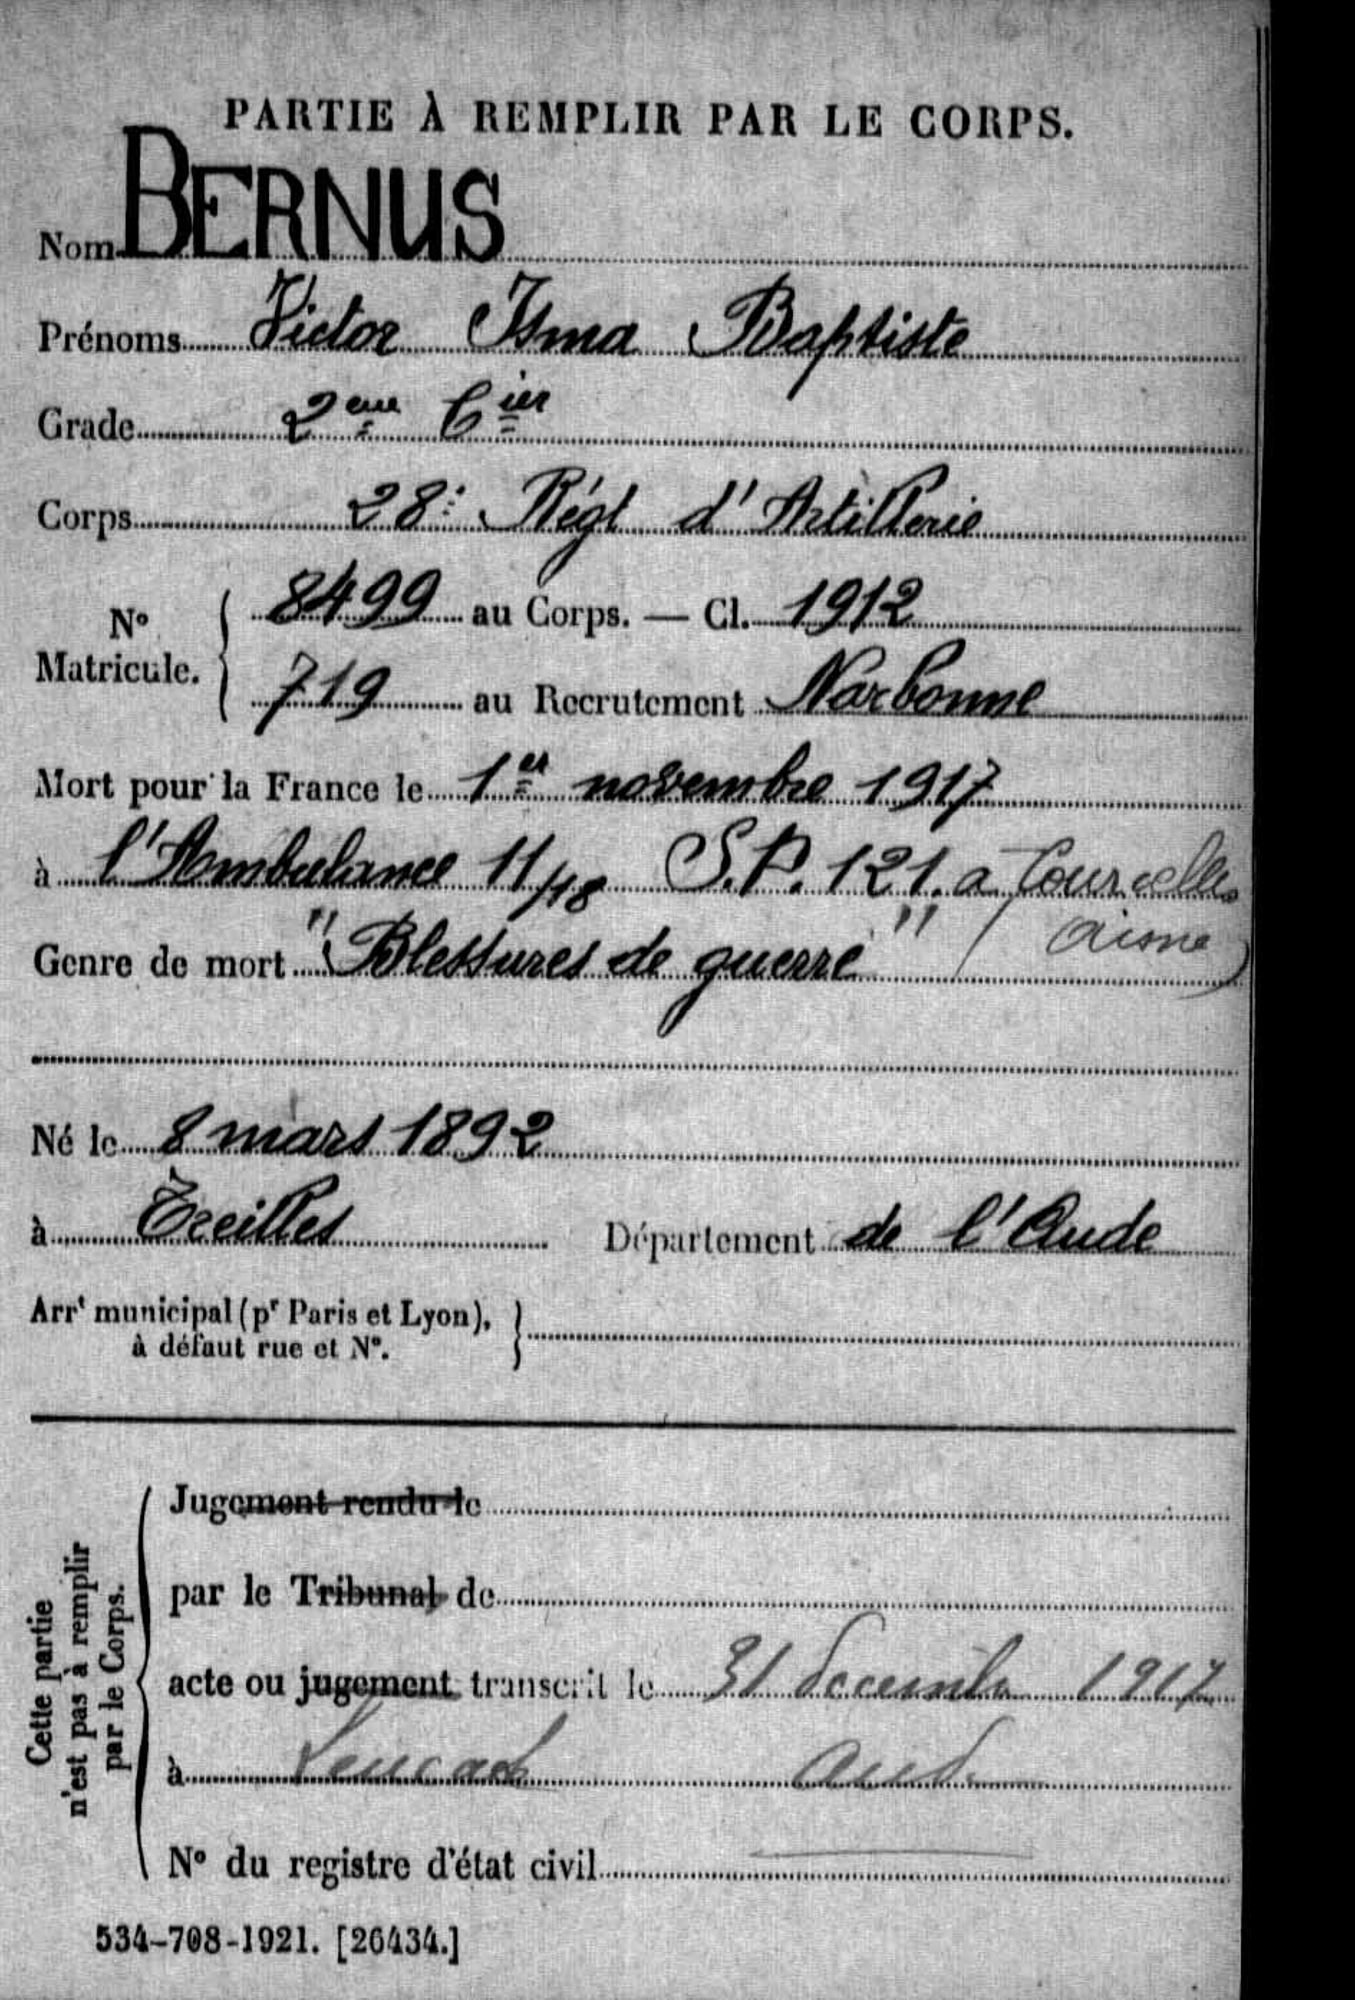 PARTIE À REMPLIR PAR LE CORPS.
Nom BERNUS
Prénoms Victor Isma Baptiste
Grade 2eme Cier
Corps 28e Régt d'Artillerie
No Matricule. 8499 au Corps. — Cl. 1912
719 au Recrutement Narbonne
Mort pour la France le 1er novembre 1917
à l'Ambulance 11/18 S.P. 121. a Courcelles
(Aisne)
Genre de mort "Blessures de guerre"
Né le 8 mars 1892
à Treilles Département de l'Aude
Arrt municipal (pr Paris et Lyon),
à défaut rue et N°.
Cette partie
n'est pas à remplir
par le Corps.
Jugement rendu le
par le Tribunal de
acte ou jugement transcrit le 31 décembre 1917
à Leucate Aude
N° du registre d'état civil
534-708-1921. [26434.]